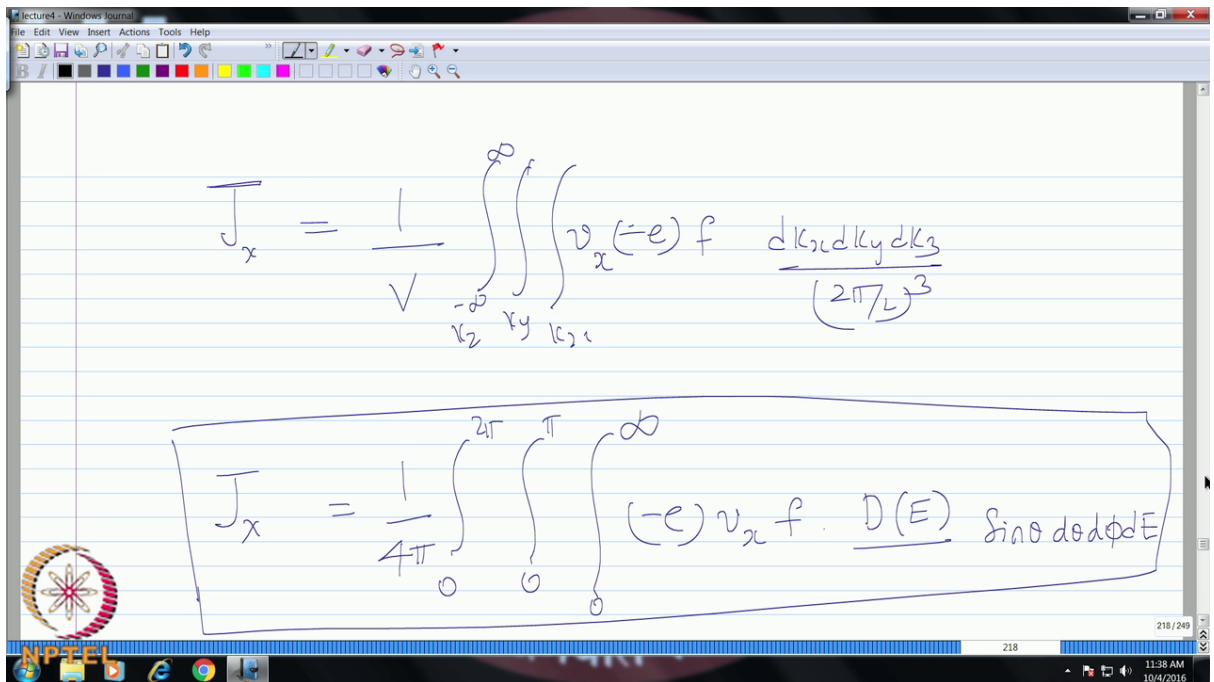 lecture4 - Windows Journal
File Edit View Insert Actions Tools Help
J_x = 1/V ∫_{-∞}^{∞} ∫ ∫ v_x (-e) f dk_x dk_y dk_z / (2π/L)^3
k_z k_y k_x
J_x = 1/4π ∫_0^{2π} ∫_0^{π} ∫_0^{∞} (-e) v_x f . D(E) sinθ dθ dφ dE
218 / 249
218
NPTEL
11:38 AM
10/4/2016